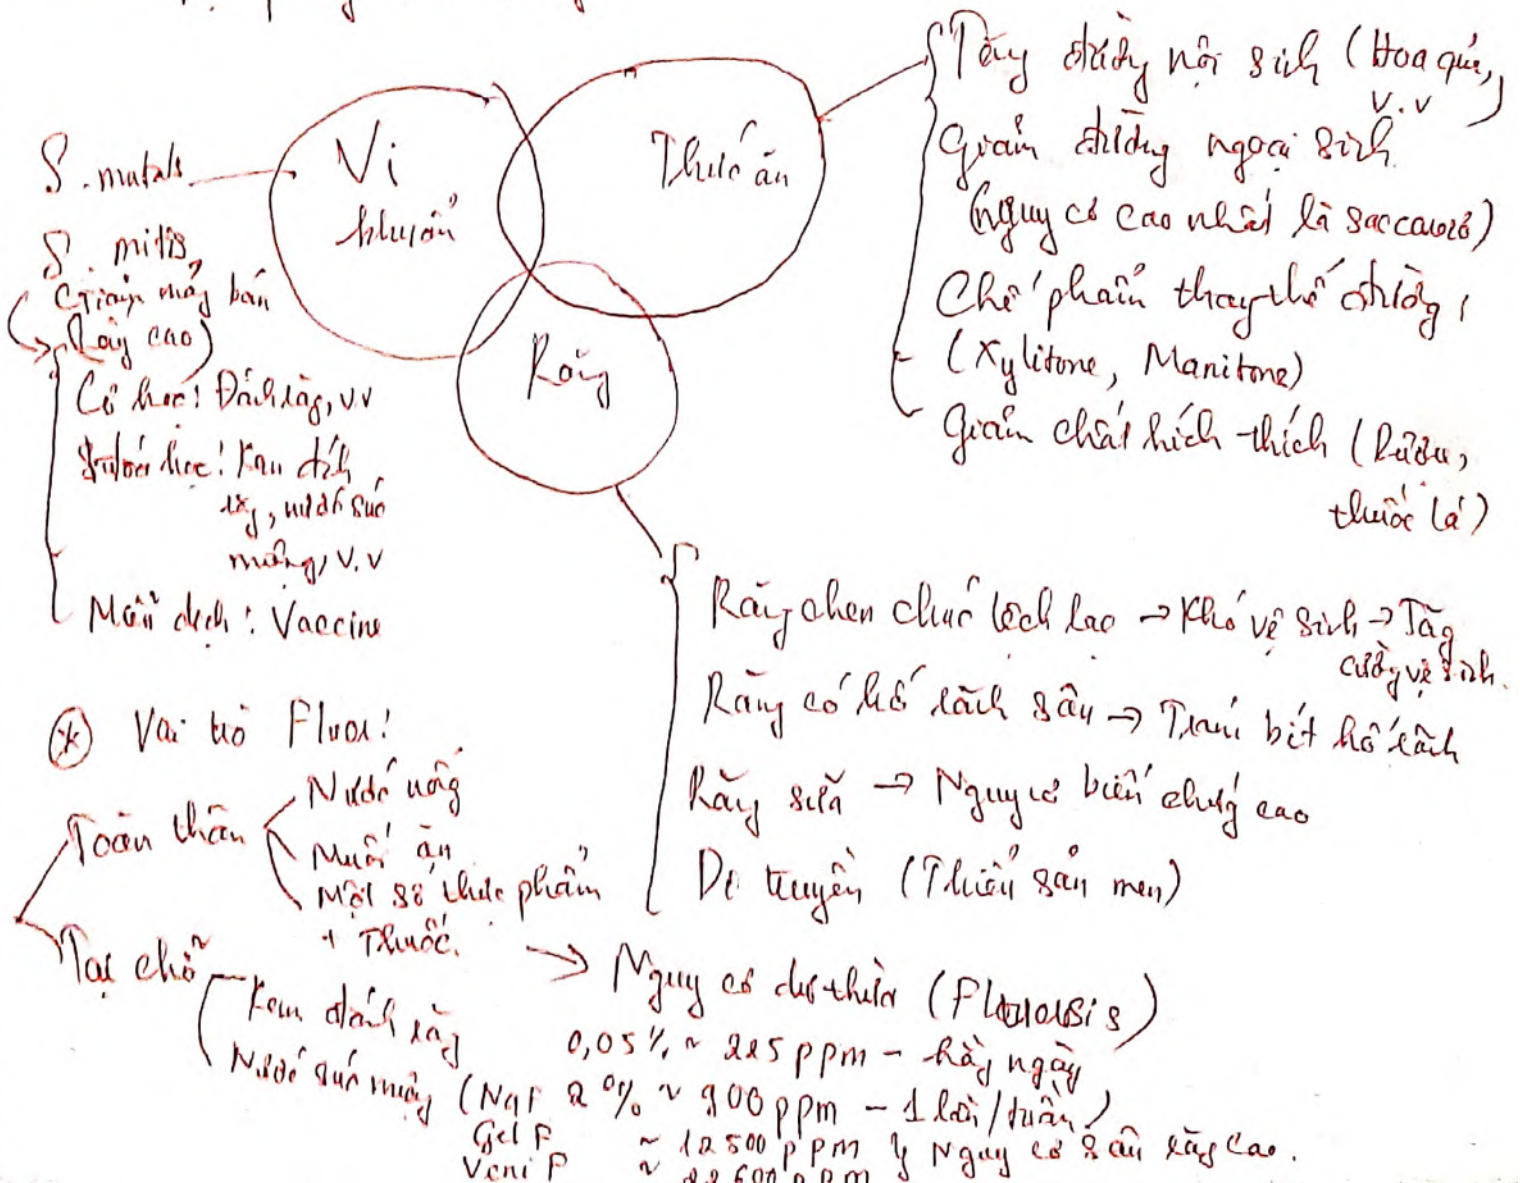 S. mutals
S. mitis,
Giảm mảng bám
(Lấy cao)
Cơ học: Đánh răng, v.v
học: Kem đánh
răng, nước súc
miệng, v.v
Miễn dịch: Vaccine
Vi
khuẩn
Thức ăn
Răng
Tăng đường nội sinh (Hoa quả,
v.v)
Giảm đường ngoại sinh
(nguy cơ cao nhất là saccarozơ)
Chế phẩm thay thế đường
(Xylitone, Manitone)
Giảm chất kích thích (Rượu,
thuốc lá)
Răng chen chúc lệch lạc → Khó vệ sinh → Tăng
cường vệ sinh.
Răng có hố rãnh sâu → Trám bít hố rãnh
Răng sữa → Nguy cơ biến chứng cao
Di truyền (Thiểu sản men)
* Vai trò Fluor:
Toàn thân
Nước uống
Muối ăn
Một số thực phẩm
+ Thuốc.
Tại chỗ
Kem đánh răng
Nước súc miệng
→ Nguy cơ dư thừa (Fluorosis)
0,05% ~ 225 ppm - hằng ngày
(NaF 2% ~ 900 ppm - 1 lần/tuần)
Gel F ~ 12500 ppm
Vecni F ~ 22600 ppm
Nguy cơ sâu răng cao.